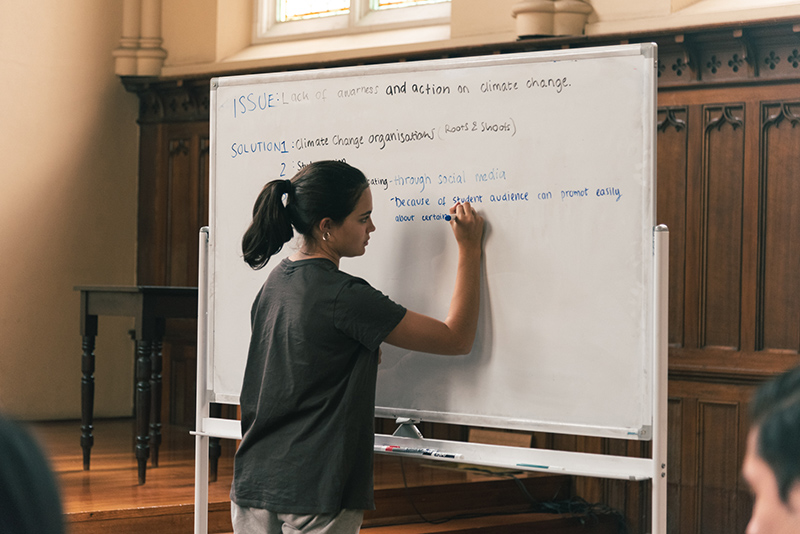 ISSUE: Lack of awarness and action on climate change.
SOLUTION 1 : Climate Change organisations (Roots & Shoots)
2 :
- through social media
- because of student audience can promot easily
about certain